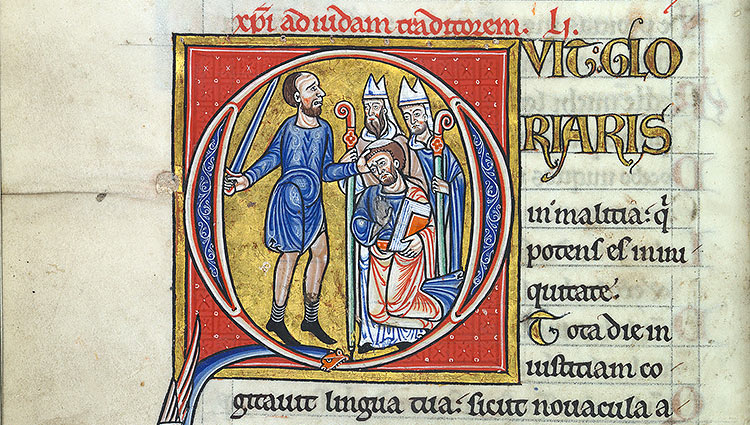 xp̄i ad iudam traditorem. Li.
QVIT: GLO
RIARIS
in malitia: qͥ
potens es in ini
quitate:
Tota die in
iustitiam co
gitauit lingua tua: sicut nouacula a